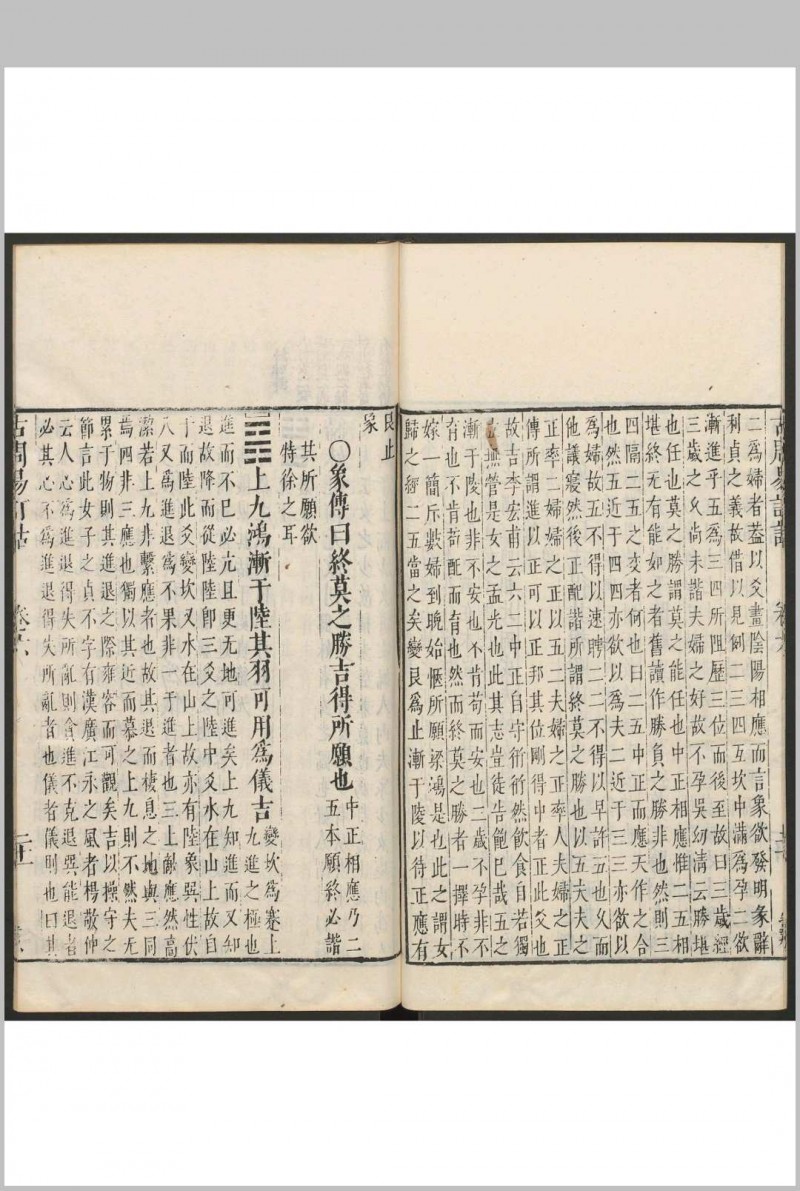 古周易訂詁
二為婦者葢以爻畫陰陽相應而言象欲發明彖辭
利貞之義故借以見例二三四互坎中滿為孕二欲
漸進乎五為三四所阻歷三位而後至故曰三歲經
三歲之久尚未諧夫婦之好故不孕吳幼清云勝堪
也任也莫之勝謂莫之能任也中正相應惟二五相
堪終无有能如之者舊讀作勝負之勝非也然則三
四隔二五之交者何也曰二五中正而應天作之合
也然五近于四四亦欲以為夫二近于三三亦欲以
為婦故五不得以速聘二二不得以早許五也久而
他議寢然後正配諧所謂終莫之勝也以五夫夫之
正率二婦婦之正以二五夫婦之正率人夫婦之正
傳所謂進以正可以正邦其位剛得中者正此爻也
故吉李宏甫云六二中正自守衎衎然飲食自若獨
無營是女之孟光也此其志豈徒告飽巳哉五之
漸于陵也非不安也不肯苟而安也二三歲不孕非不
育也不肯苟配而育也然而終莫之勝者一擇時不
嫁一簡斥數婦到晚始愜所願梁鴻是也此之謂女
歸之經二五當之矣變艮為止漸于陵以待正應有
艮止
象
〇象傳曰終莫之勝吉得所願也中正相應乃二
五本願終必諧
其所願欲
特徐之耳
上九鴻漸于陸其羽可用為儀吉變坎為蹇上
九進之極也
進而不巳必亢且更无地可進矣上九知進而又知
退故降而從陸陸卽三爻之陸中爻水在山上故自
干而陸此爻變坎又水在山上故亦有陸象巽性伏
入又為進退為不果非一于進者也三上敵應然高
潔若上九非繫應者也故其退而棲息之地與三同
焉四非三應也獨以其近而慕之上九則不然夫无
累于物則其進退之際雍容而可觀矣吉以操守之
節言此女子之貞不字有漢廣江永之風者楊敬仲
云人心為進退得失所亂則貪進不克退巽能退者
必其心不為進退得失所亂者也儀者儀則也曰其
古周易訂詁
卷六